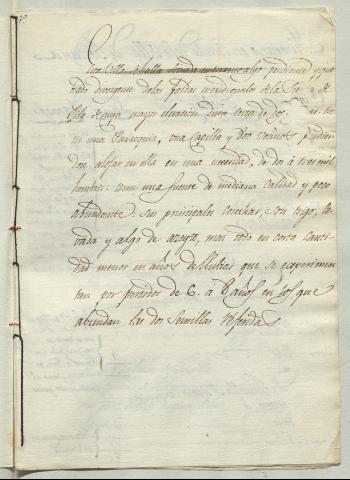 Esta Villa se halla situada en terreno algo pendiente y que
divergente de las faldas meridionales de la Sierra de
de cuya mayor elevacion dista cerca de dos
ne una Parroquia, una Capilla y 200 vecinos pudien-
dose alojar en ella en una necesidad, de dos á tres mil
hombres: tiene una fuente de mediana calidad y poco
abundante. Sus principales cosechas, son trigo, ce
vada y algo de azeyte, mas todo en corta canti-
dad menos en años de llubias que se experimen
tan por periodos de 6. á 8 años en los que
abundan las dos Semillas referidas